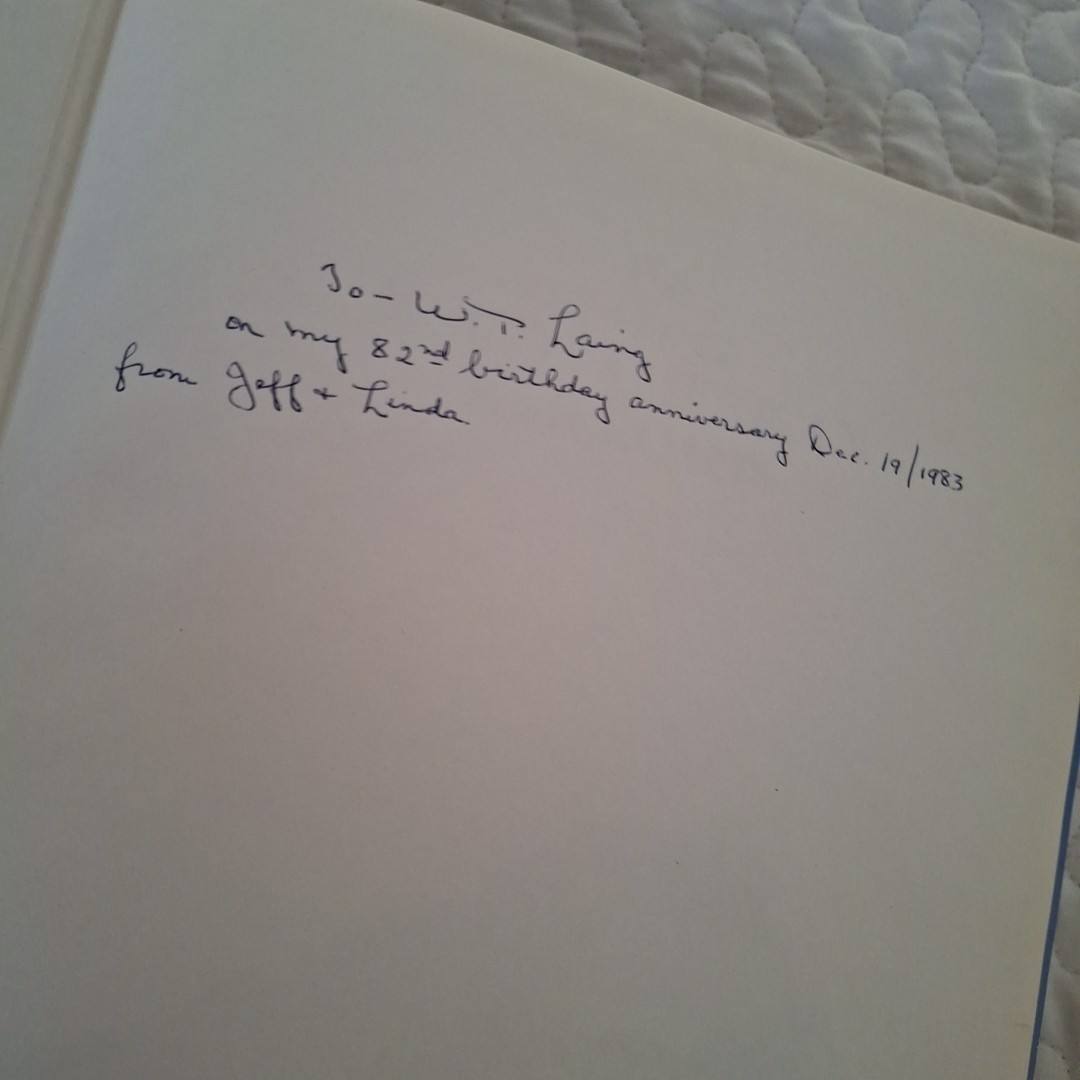 To - W.T. Laing
on my 82nd birthday anniversary Dec. 19/1983
from Jeff + Linda